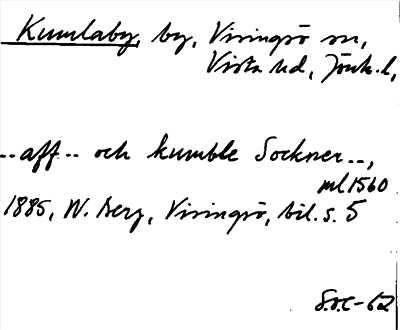 Kumlaby, by, Visingsö sn,
Vista hd, Jönk. l,
..aff.. och kumble Sockner..,
ml 1560
1885, W. Berg, Visingsö, bil. s. 5
S.O.C-62